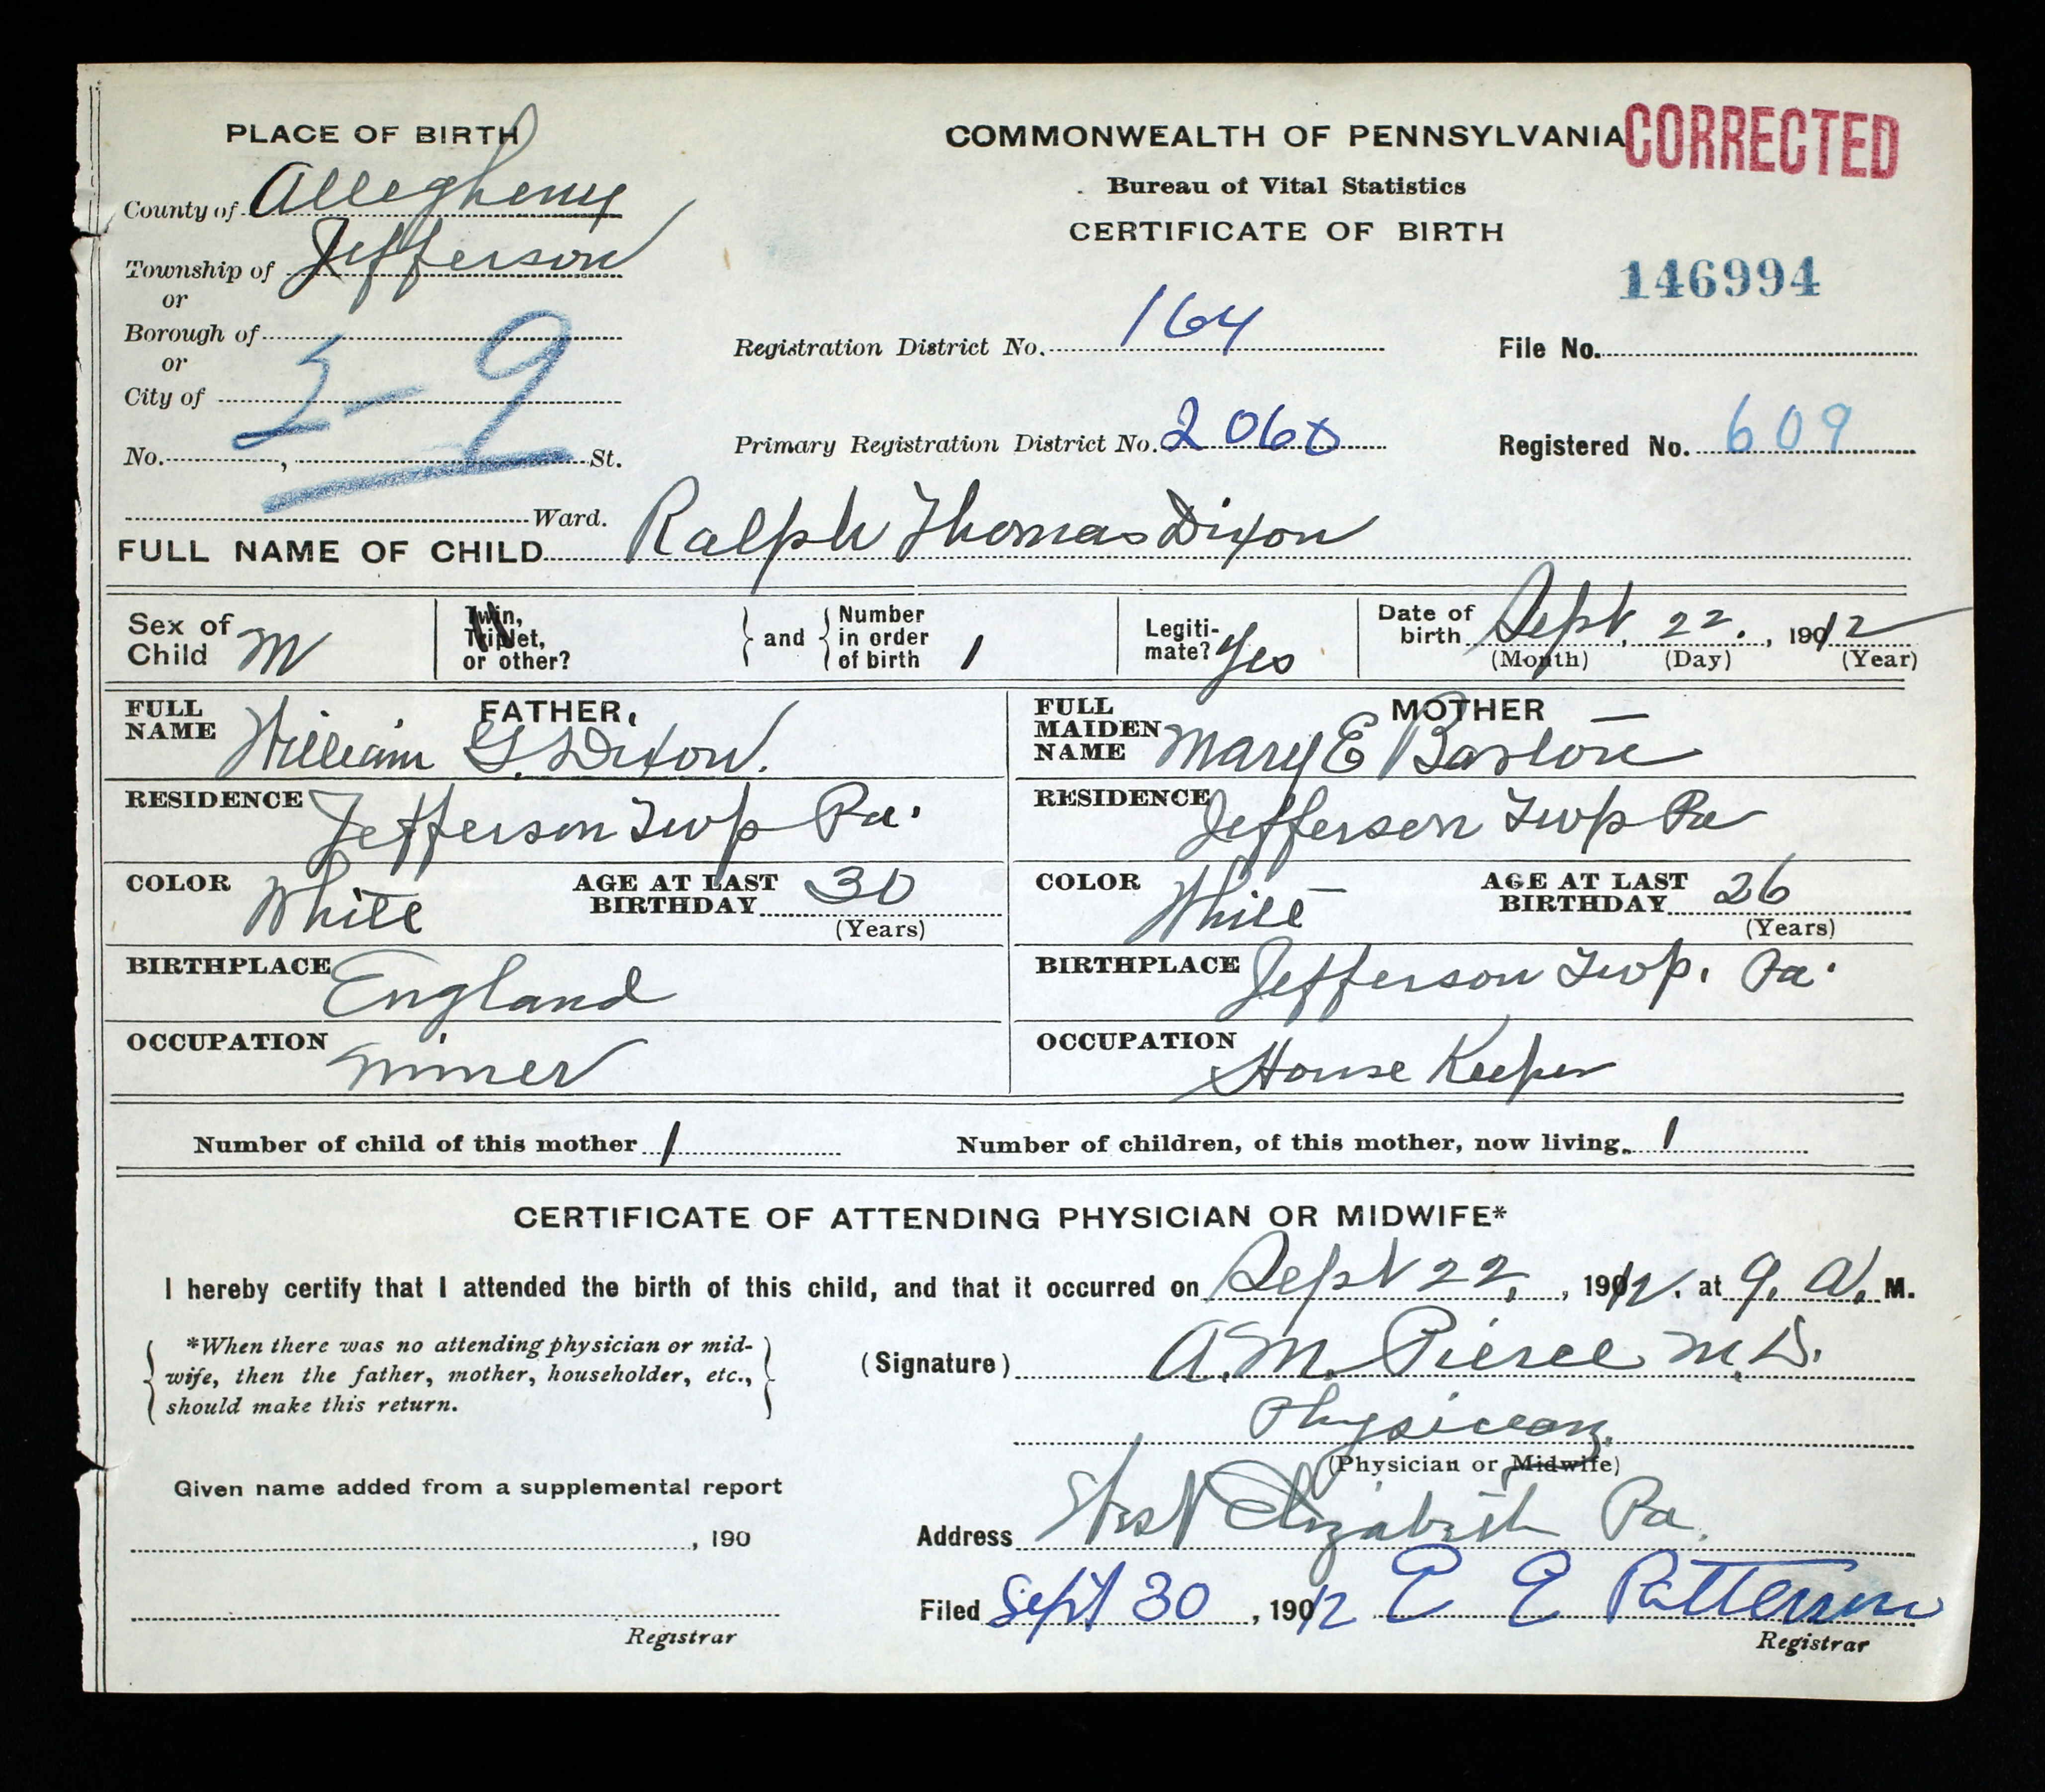 PLACE OF BIRTH
County of Allegheny
Township of Jefferson
or
Borough of
or
City of
No. , St.
Ward.
COMMONWEALTH OF PENNSYLVANIA
CORRECTED
Bureau of Vital Statistics
CERTIFICATE OF BIRTH
146994
Registration District No. 164
File No.
Primary Registration District No. 2068
Registered No. 609
FULL NAME OF CHILD Ralph Thomas Dixon
Sex of Child M
Twin, Triplet, or other?
and
Number in order of birth 1
Legiti-mate? Yes
Date of birth Sept. 22. , 1912
(Month) (Day) (Year)
FATHER
FULL NAME William G. Dixon.
RESIDENCE Jefferson Twp Pa.
COLOR White
AGE AT LAST BIRTHDAY 30
(Years)
BIRTHPLACE England
OCCUPATION Miner
MOTHER
FULL MAIDEN NAME Mary E Barton
RESIDENCE Jefferson Twp Pa
COLOR White
AGE AT LAST BIRTHDAY 26
(Years)
BIRTHPLACE Jefferson Twp. Pa.
OCCUPATION House Keeper
Number of child of this mother 1
Number of children, of this mother, now living 1
CERTIFICATE OF ATTENDING PHYSICIAN OR MIDWIFE*
I hereby certify that I attended the birth of this child, and that it occurred on Sept 22, , 1912. at 9. A. M.
*When there was no attending physician or mid-
wife, then the father, mother, householder, etc.,
should make this return.
(Signature) A. M. Pierce M.D.
Physician.
(Physician or Midwife)
Given name added from a supplemental report
, 190
Registrar
Address West Elizabeth Pa.
Filed Sept 30 , 1912 E E Patterson
Registrar